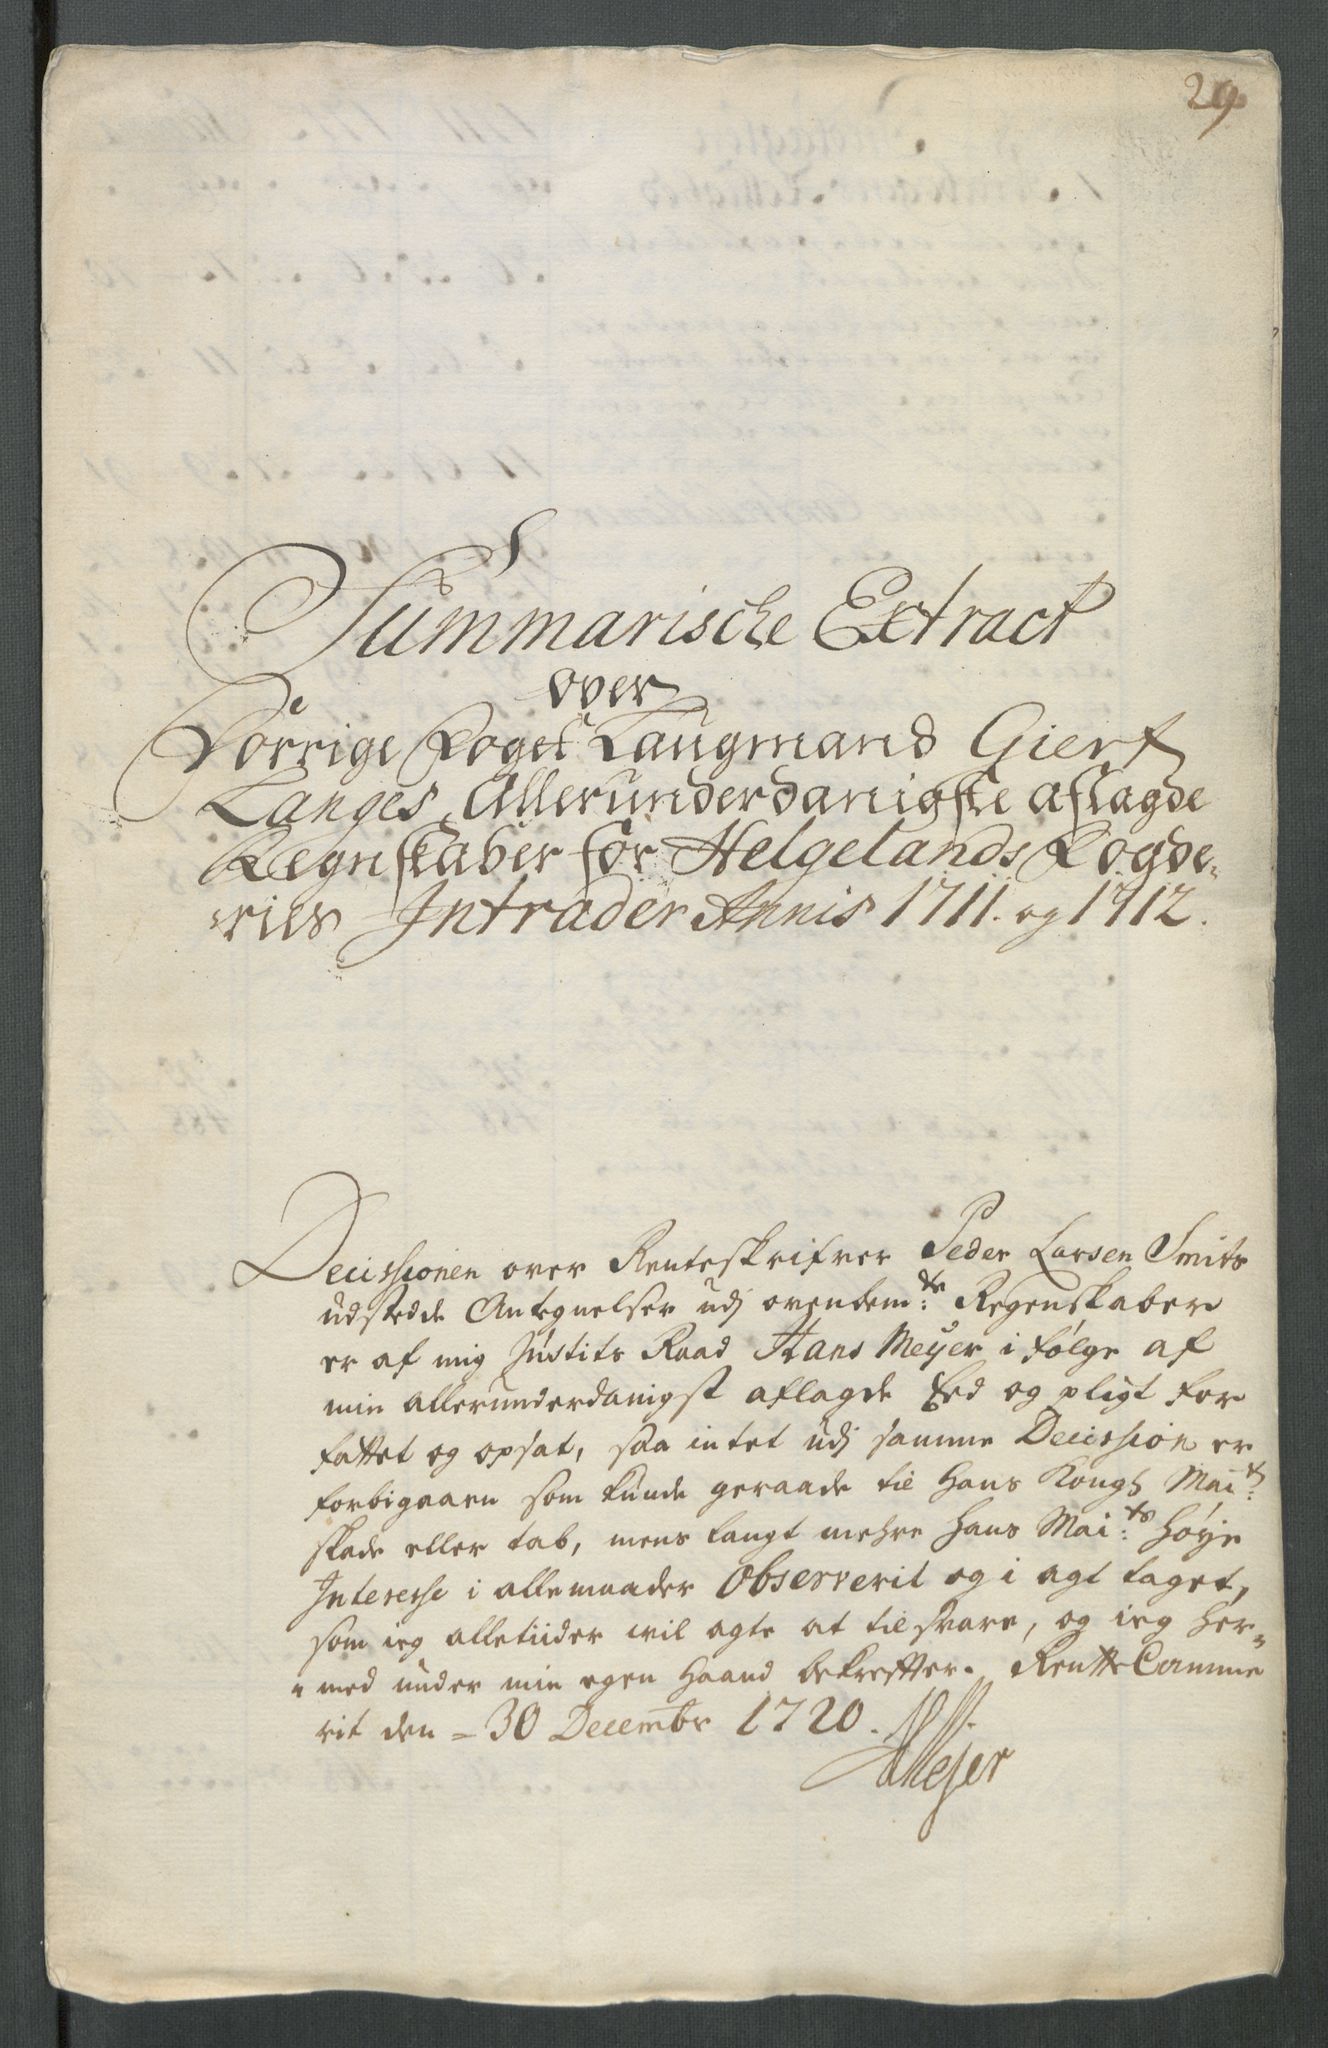 29.
Summarische Extract
over
Forrige Foget Laugmand Giert
Langes, Allerunderdanigste aflagde
Regnskaber for Helgelands Fogde-
-ries Intrader Annis 1711. og 1712.
Decissionen over Renteskrifver Peder Larsen Smits
udstedde Antegnelser udj ovenbem:te Regenskaber
er af mig Justits Raad Hans Meyer i følge af
min allerunderdanigst aflagde Eed og pligt for
fattet og opsat, saa intet udj samme Decission er
forbigaaen som kunde geraade til Hans Kongl Mai:ts
skade eller tab, mens langt mehre Hans Mai:ts høye
Interesse i alle maader Observerit og i agt taget,
som ieg alletiider wil agte at tilsvare, og ieg her-
-med under min egen Haand bekrefter. RentteCamme
rit den - 30 Decembr 1720.
HMeyer